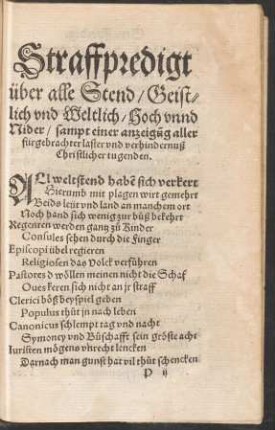 Straffpredigt
über alle Stend / Geist⸗
lich vnd Weltlich / Hoch vnnd
Nider / sampt einer anzeigũg aller
fürgebrachter laster vnd verhindernuß
Christlicher tugenden.
ALl weltstend habẽ sich verkert
Sitenmb mit plagen wirt gemehrt
Beids leüt vnd land an manchem ort
Noch hand sich wenig zur bůß bekehrt
Regenten werden gantz zů Kinder
Consules sehen durch die Finger
Episcopi übel regieren
Religiosen das Volck verfühꝛen
Pastores d wöllen meinen nicht die Schaf
Oues keren sich nicht an jr straff
Clerici bőß beyspiel geben
Populus thůt jn nach leben
Canonicus schlempt tag vnd nacht
Symoney vnd Bůschafft sein gröste acht
Iuristen mögens vnrecht lencken
Darnach man gunst hat vil thůt schencken
P ij